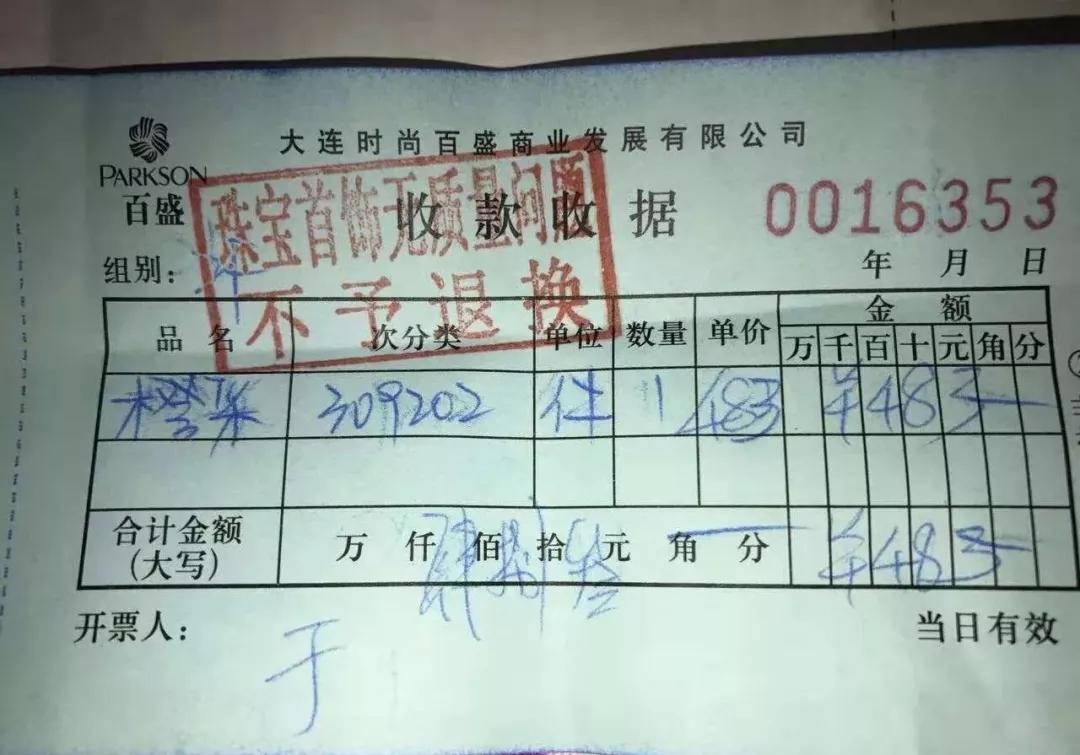 大连时尚百盛商业发展有限公司
PARKSON
百盛
珠宝首饰无质量问题
不予退换
收款收据
0016353
组别:
年 月 日
品名 次分类 单位 数量 单价 金额
万 千 百 十 元 角 分
309202 件 1 483 ¥483
合计金额
(大写)
万 仟 佰 拾 元 角 分
肆 捌 叁 ¥483
开票人: 于
当日有效